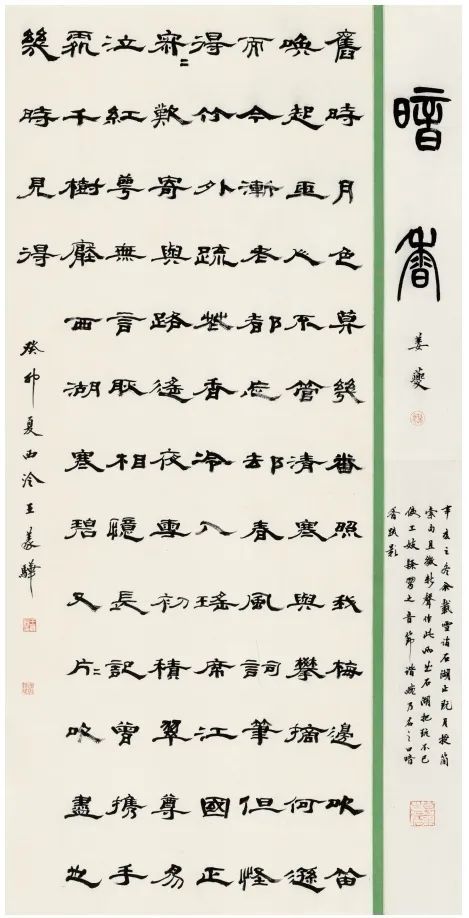 暗香
姜夔
辛亥之冬余載雪詣石湖止既月授簡
索句且徵新聲作此兩曲石湖把玩不已
使工妓隸習之音節諧婉乃名之曰暗
香疏影
舊時月色算幾番照我梅邊吹笛
喚起玉人不管清寒與攀摘何遜
而今漸老都忘卻春風詞筆但怪
得竹外疏花香冷入瑤席江國正
寂〻歎寄與路遙夜雪初積翠尊易
泣紅萼無言耿相憶長記曾攜手
處千樹壓西湖寒碧又片〻吹盡也
幾時見得
癸卯夏西泠王義驊